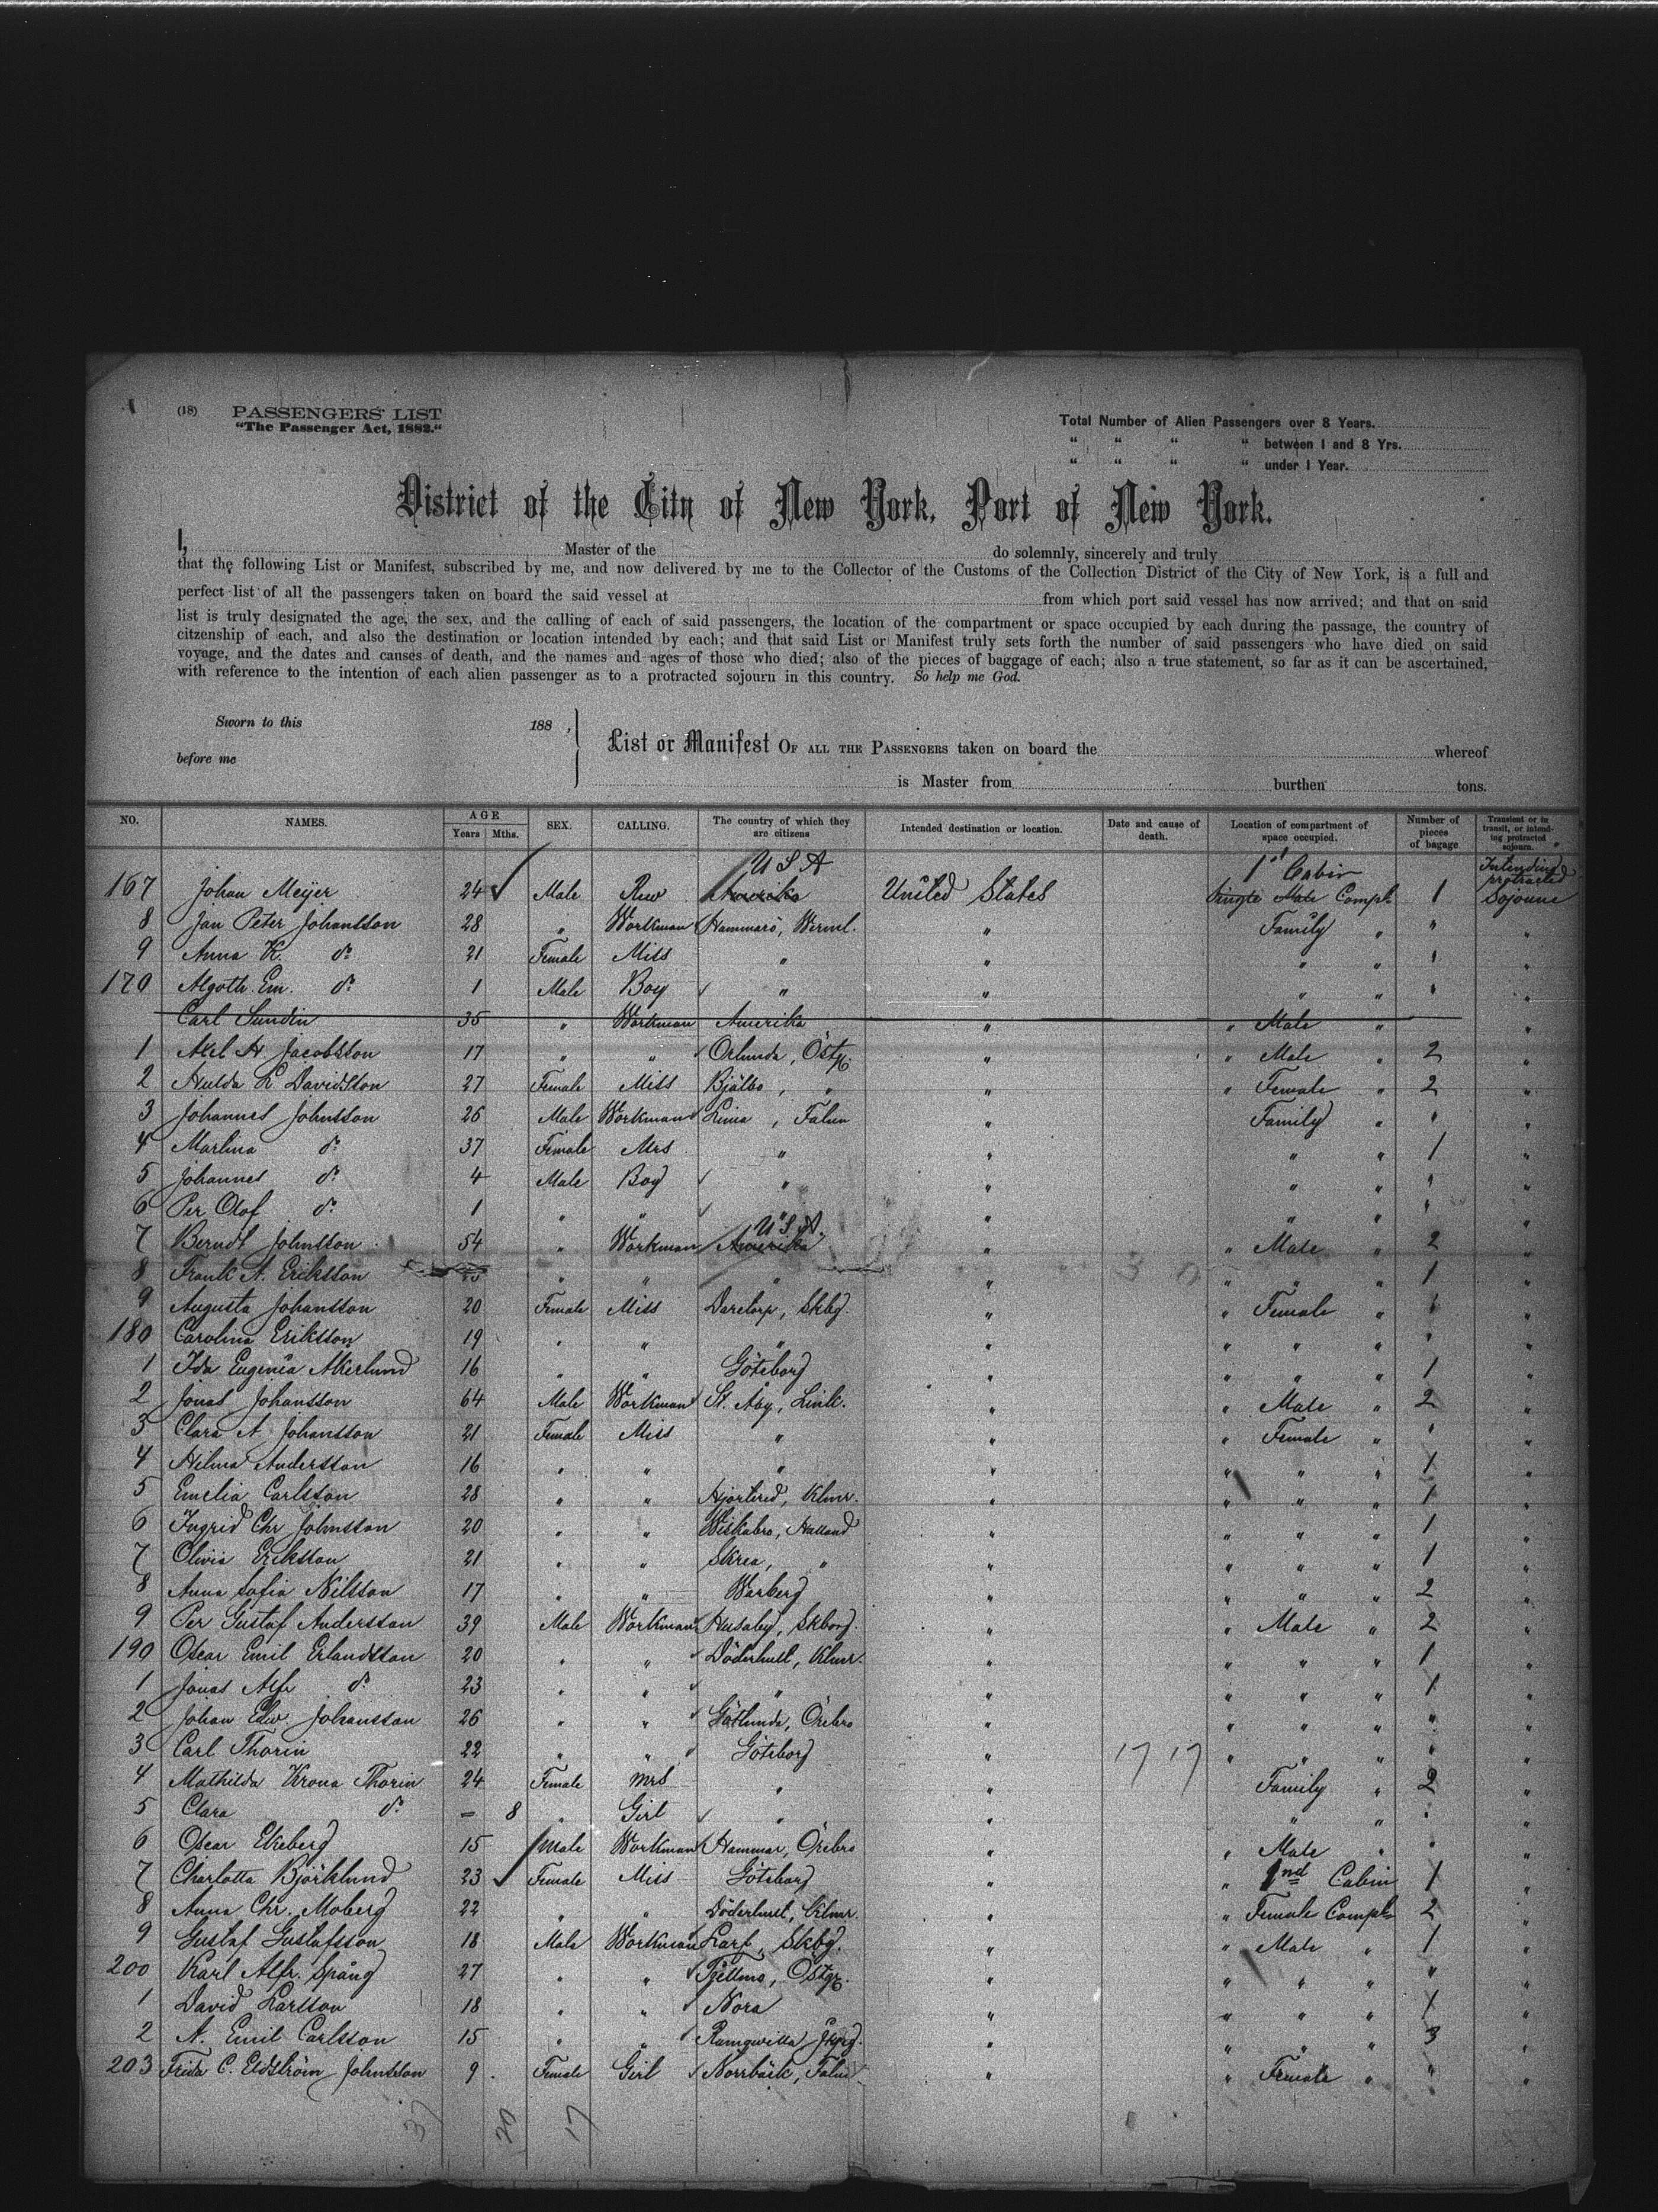 (18) PASSENGERS' LIST
"The Passenger Act, 1882."
Total Number of Alien Passengers over 8 Years.
" " " " between 1 and 8 Yrs.
" " " " under 1 Year.
District of the City of New York, Port of New York.
I, Master of the do solemnly, sincerely and truly
that the following List or Manifest, subscribed by me, and now delivered by me to the Collector of the Customs of the Collection District of the City of New York, is a full and
perfect list of all the passengers taken on board the said vessel at from which port said vessel has now arrived; and that on said
list is truly designated the age, the sex, and the calling of each of said passengers, the location of the compartment or space occupied by each during the passage, the country of
citzenship of each, and also the destination or location intended by each; and that said List or Manifest truly sets forth the number of said passengers who have died on said
voyage, and the dates and causes of death, and the names and ages of those who died; also of the pieces of baggage of each; also a true statement, so far as it can be ascertained,
with reference to the intention of each alien passenger as to a protracted sojourn in this country. So help me God.
Sworn to this 188 ,
before me
List or Manifest OF ALL THE PASSENGERS taken on board the whereof
is Master from burthen tons.
NO. NAMES. AGE Years Mths. SEX. CALLING. The country of which they are citizens Intended destination or location. Date and cause of death. Location of compartment of space occupied. Number of pieces of bagage Transient or in transit, or intending protracted sojourn.
U S A 1st Cabin Intending protracted
167 Johan Meijer 24 Male Amerika United States Single Male Compt. 1 Sojourne
8 Jan Peter Johansson 28 " Workman Hammarö, Werml. " Family " " "
9 Anna K. do 21 Female Miss " " " " " "
170 Algoth Em. do 1 Male Boy " " " " " "
Carl Sundin 35 " Workman Amerika " " Male " "
1 Axel H Jacobsson 17 " " Orlunda, Östg. " " Male " 2 "
2 Hulda L Davidsson 27 Female Miss Bjälbo, " " " Female " 2 "
3 Johannes Johnsson 26 Male Workman Lima, Falun " Family " " "
4 Marlina do 37 Female Mrs " " " " 1 "
5 Johannes do 4 Male Boy " " " " " "
6 Per Olof do 1 " " " " " " " "
U.S.A.
7 Berndt Johnsson 54 " Workman Amerika " " Male " 2 "
8 Frank A. Eriksson " " " " " " " 1 "
9 Augusta Johansson 20 Female Miss Daretorp, Skbg. " " Female " 1 "
180 Carolina Eriksson 19 " " " " " " " " "
1 Ida Eugenia Åkerlund 16 " " Göteborg " " " " 1 "
2 Jonas Johansson 64 Male Workman St. Åby, Link. " " Male " 2 "
3 Clara A. Johansson 21 Female Miss " " " Female " " "
4 Hilma Andersson 16 " " " " " " " 1 "
5 Emelia Carlsson 28 " " Hjorted, Klmr. " " " " 1 "
6 Ingrid Chr Johnsson 20 " " Wiskabro, Halland " " " " 1 "
7 Olivia Eriksson 21 " " Skrea, " " " " " 1 "
8 Anna Sofia Nilsson 17 " " Warberg " " " " 2 "
9 Per Gustaf Andersson 39 Male Workman Husaby, Skborg. " " Male " 2 "
190 Oscar Emil Erlandsson 20 " " Döderhult, Klmr. " " " " 1 "
1 Jonas Alfr do 23 " " " " " " " 1 "
2 Johan Edw. Johansson 26 " " Götlunda, Örebro " " " " " "
3 Carl Thorin 22 " " Göteborg " 17 17 " " " " "
4 Mathilda Krona Thorin 24 Female Mrs " " Family " 2 "
5 Clara do - 8 " Girl " " " " " "
6 Oscar Ekeberg 15 Male Workman Hammar, Örebro " " Male " " "
7 Charlotta Björklund 23 Female Miss Göteborg " " 2nd Cabin 1 "
8 Anna Chr. Moberg 22 " " Döderhult, Klmr. " " Female Compt. 2 "
9 Gustaf Gustafsson 18 Male Workman Larf, Skbg. " " Male " 1 "
200 Karl Alfr. Spång 27 " " Tjellmo, Östgr. " " " " " "
1 David Larsson 18 " " Nora " " " " 1 "
2 A. Emil Carlsson 15 " " Ramqwilla " " " " 3 "
203 Frida C. Eldström Johnsson 9 Female Girl Norrbäck, Falun " " Female " " "
37 20 17